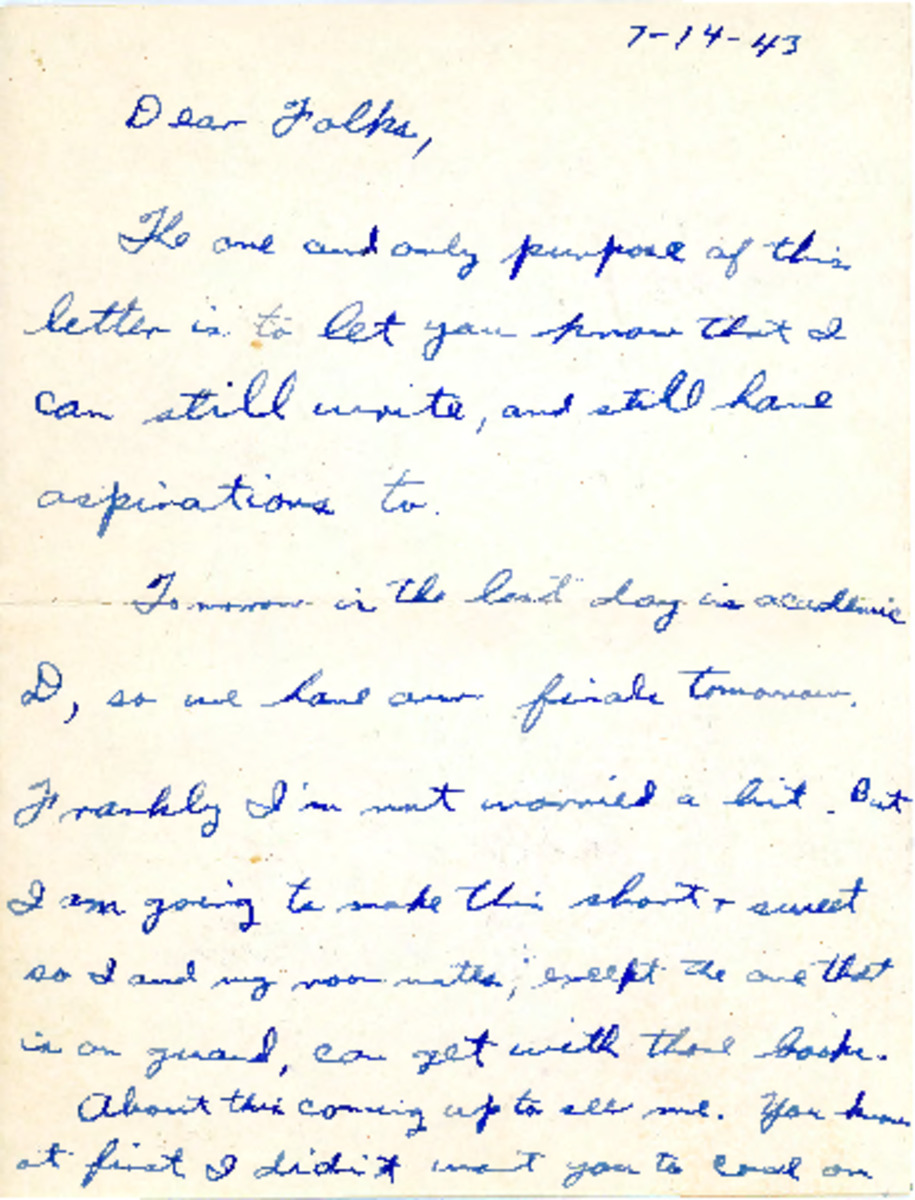 7-14-43
Dear Folks,
The one and only purpose of this
letter is to let you know that I
can still write, and still have
aspirations to.
Tomorrow is the last day in academic
D, so we have our finals tomorrow.
Frankly I'm not worried a bit. But
I am going to make this short + sweet
so I and my room mates, except the one that
is on guard, can get with those books.
About this coming up to see me. You know
at first I didn't want you to